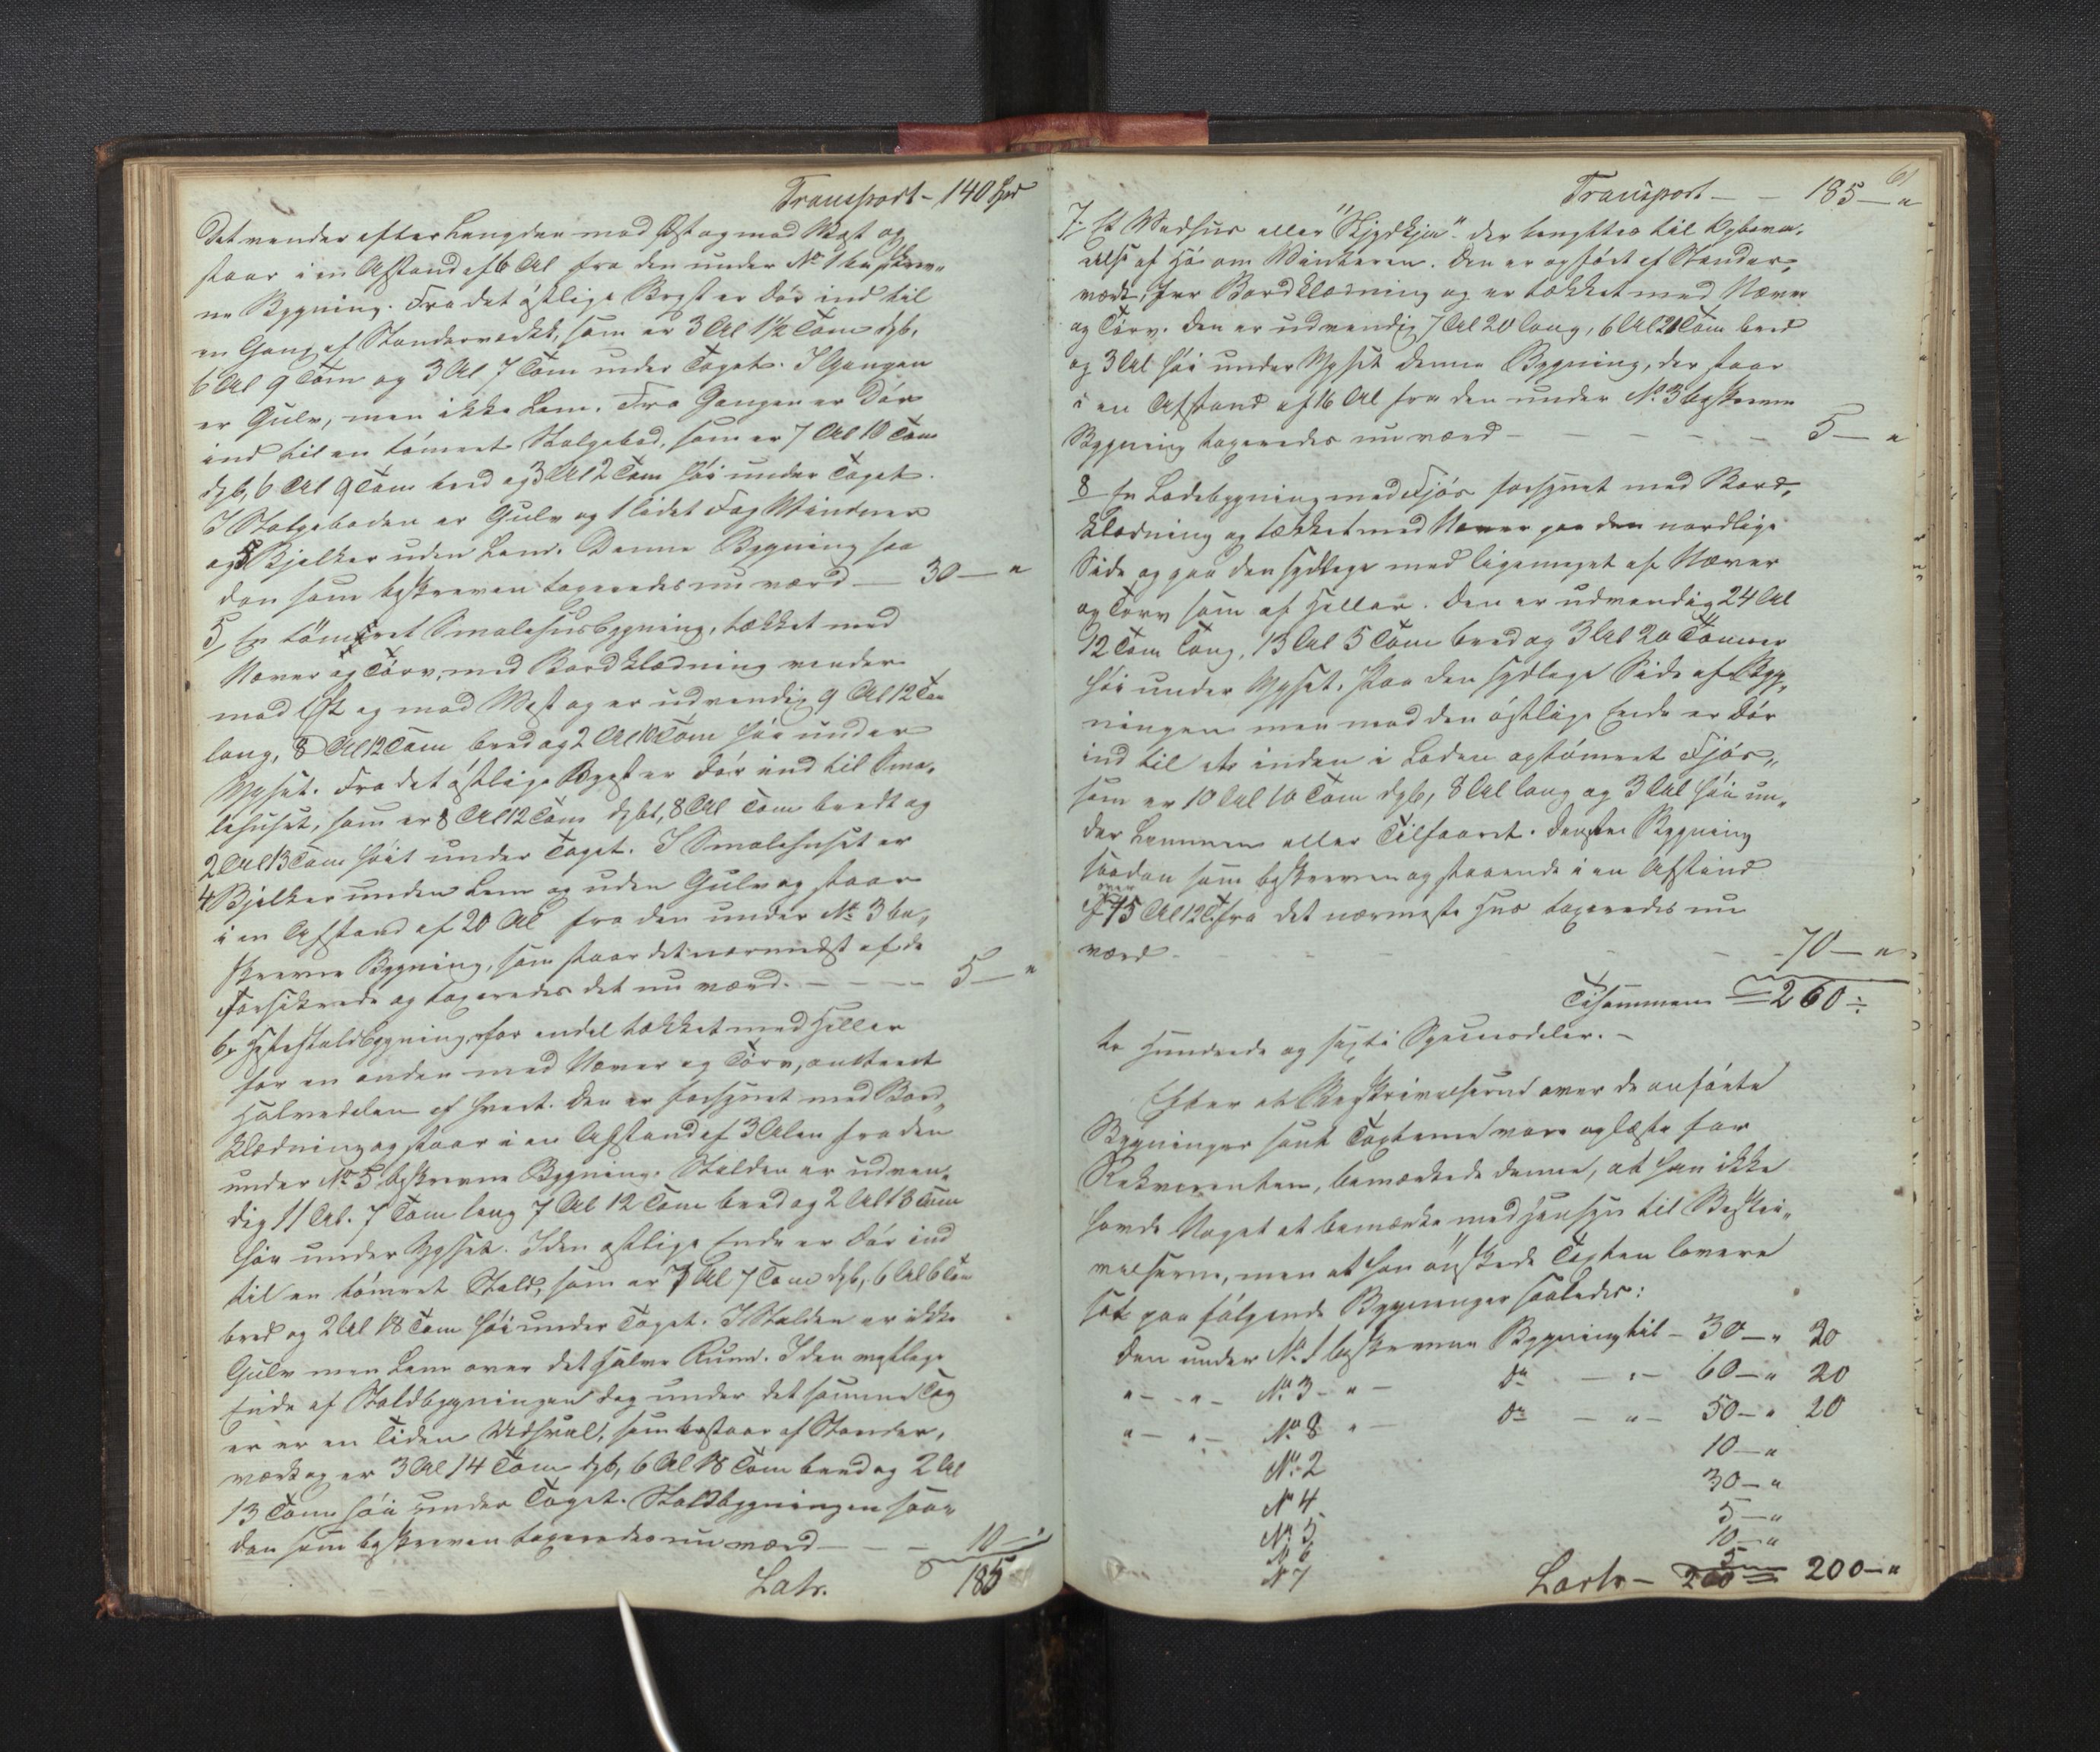 Transport - 140 Spd
Det vender efter Længden mod Øst og mod Vest og
staar i en Afstand af 6 Al fra den under No 1 beskrev„
ne Bygning. Fra det østlige Bryst er Dør ind til
en Gang af Stenderværk, som er 3 Al 1½ Tom dyb,
6 Al 9 Tom og 3 Al 7 Tom under Taget. I Gangen
er Gulv, men ikke Lem. Fra Gangen er Dør
ind til en tømret Stolpebod, som er 7 Al 10 Tom
dyb, 6 Al 9 Tom bred og 3 Al 2 Tom høi under Taget.
I Stolpeboden er Gulv og 1 lidet Fag Vinduer
og 5 Bjelker uden Lem. Denne Bygning saa
dan som beskreven taxeredes nu værd — 30 — "
5, En tømret Smalehusbygning, tækket med
Næver og Törv, med Bordklædning vender
mod Øst og mod Vest og er udvendig 9 Al 12 Tom
lang, 8 Al 12 Tom bred og 2 Al 10 Tom høi under
Ypset. Fra det østlige Bryst er Dør ind til Sma„
lehuset, som er 8 Al 12 Tom dybt, 8 Al Tom bredt og
2 Al 13 Tom høit under Taget. I Smalehuset er
4 Bjelker unden Lem og uden Gulv og staar
i en Afstand af 20 Al fra den under No 3 be„
skrevne Bygning, som staar det nærmest af de
forsikrede og taxeredes det nu værd. — — — 5 — "
6, Hestestaldbygning, for endel tækket med Heller
for en anden med Næver og Törv, omtrent
Halvedelen af hvert. Den er forsynet med Bord„
klædning og staar i en Afstand af 3 Alen fra den
under No 5 beskrevne Bygning. Stalden er udven„
dig 11 Al. 7 Tom lang 7 Al 12 Tom bred og 2 Al 18 Tom
høi under Ypset. I den østlige Ende er Dør ind
til en tømret Stald, som er 7 Al 7 Tom dyb, 6 Al 6 Tom
bred og 2 Al 18 Tom høi under Taget. I Stalden er ikke
Gulv men Lem over det halve Rum. I den vestlige
Ende af Staldbygningen dog under det samme Tag
er er en liden Udsval, som bestaar af Stender„
værk og er 3 Al 14 Tom dyb, 6 Al 18 Tom bred og 2 Al
13 Tom høi under Taget. Staldbygningen saa„
dan som beskreven taxeredes nu værd — — — 10 — "
Latr. 185
61
Transport — — 185 — "
7. Et Vedhus eller "Skydkjæ" der benyttes til Opbeva„
relse af Hö om Vinteren. Den er opfört af Stender„
værk, har Bordklædning og er tækket med Næver
og Törv. Den er udvendig 7 Al 20 lang, 6 Al 21 Tom bred
og 3 Al høi under Ypset denne Bygning, der staar
i en Afstand af 16 Al fra den under No 3 beskrevne
Bygning taxeredes nu værd — — — — — 5 — "
8 En Ladebygning med Fjös forsynet med Bord„
klædning og tækket med Næver paa den nordlige
Side og paa den sydlige med ligemeget af Næver
og Torv som af Heller. Den er udvendig 24 Al
12 Tom lang, 13 Al 5 Tom bred og 3 Al 20 Tommer
høi under Ypset. Paa den sydlige Side af Byg„
ningen men mod den østlige Ende er Dør
ind til et inden i Laden optømret Fjös„
som er 10 Al 10 Tom dyb, 8 Al lang og 3 Al høi un„
der Lemmen eller Tilfaaret. Denne Bygning
saadan som beskreven og staaende i en Afstand
over
af 15 Al 12 T. fra det nærmeste Hus taxeredes nu
værd - - - - - - 70 — "
Tilsammen = 260 -
to Hundrede og sexti Speciesdaler. -
Efter at Beskrivelserne over de anførte
Bygninger samt Taxterne vare oplæste for
Rekvirenten, bemærkede denne, at han ikke
havde Noget at bemærke med Hensyn til Beskri„
velserne, men at han ønskede Taxten lavere
sat paa følgende Bygninger saaledes:
Den under No 1 beskrevne Bygning til - 30 — " 20
" — " — No 3 — " — Do — " — 60 — " 20
" — " — No 8 " — Do — " — 50 — " 20
No 2 10 — "
No 4 30 — "
No 5 5 — "
No 6 10 — "
No 7 5
Latr — 200 = 200 — "